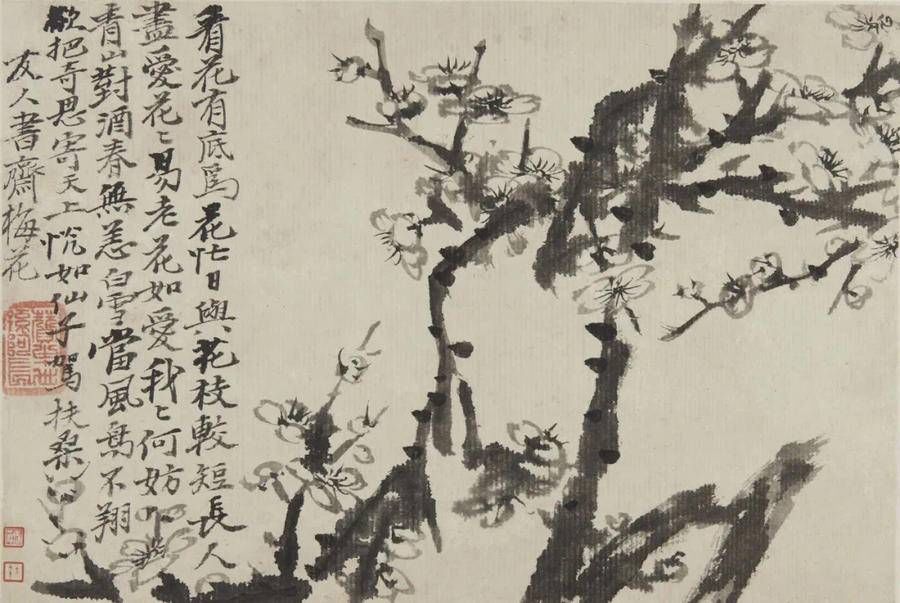 看花有底為花忙日與花枝較短長人
盡愛花〻易老花如愛我〻何妨
青山對酒春無恙白雪當風鳥不翔
欲把奇思寄天上恍如仙子駕扶桑
友人書齋梅花
贊之十世孫阿長